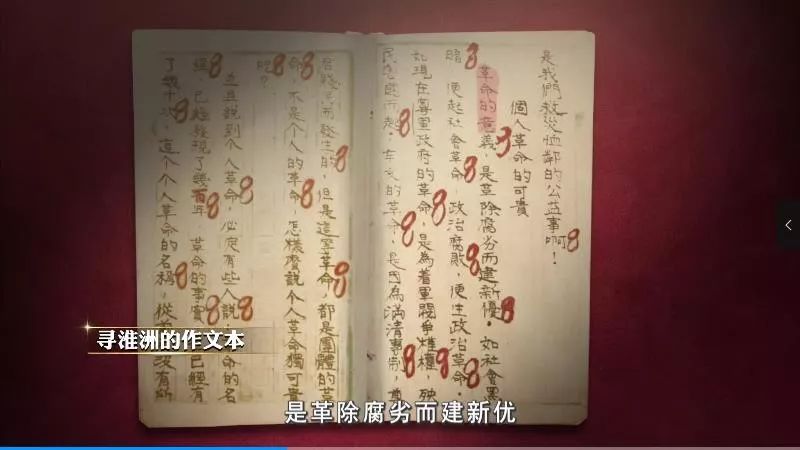 是我們救災恤鄰的公益事啊！
個人革命的可貴
革命的意義，是革除腐劣而建新優。如社會黑
暗，便起社會革命，政治腐敗，便生政治革命。
如現在粤軍政府的革命，是為着軍閥爭權，殃
民
而起，辛亥的革命，是因為滿清專制，
而發生的，但是這等革命，都是團體的革
命，不是個人的革命，怎樣麼說個人革命獨可貴
呢？
並且說到個人革命，必定有些人說，
命的名
已經發現了幾百年，革命的事實
已經有
了幾千
，這个个人革命的名稱，從
沒有所
寻淮洲的作文本
是革除腐劣而建新优